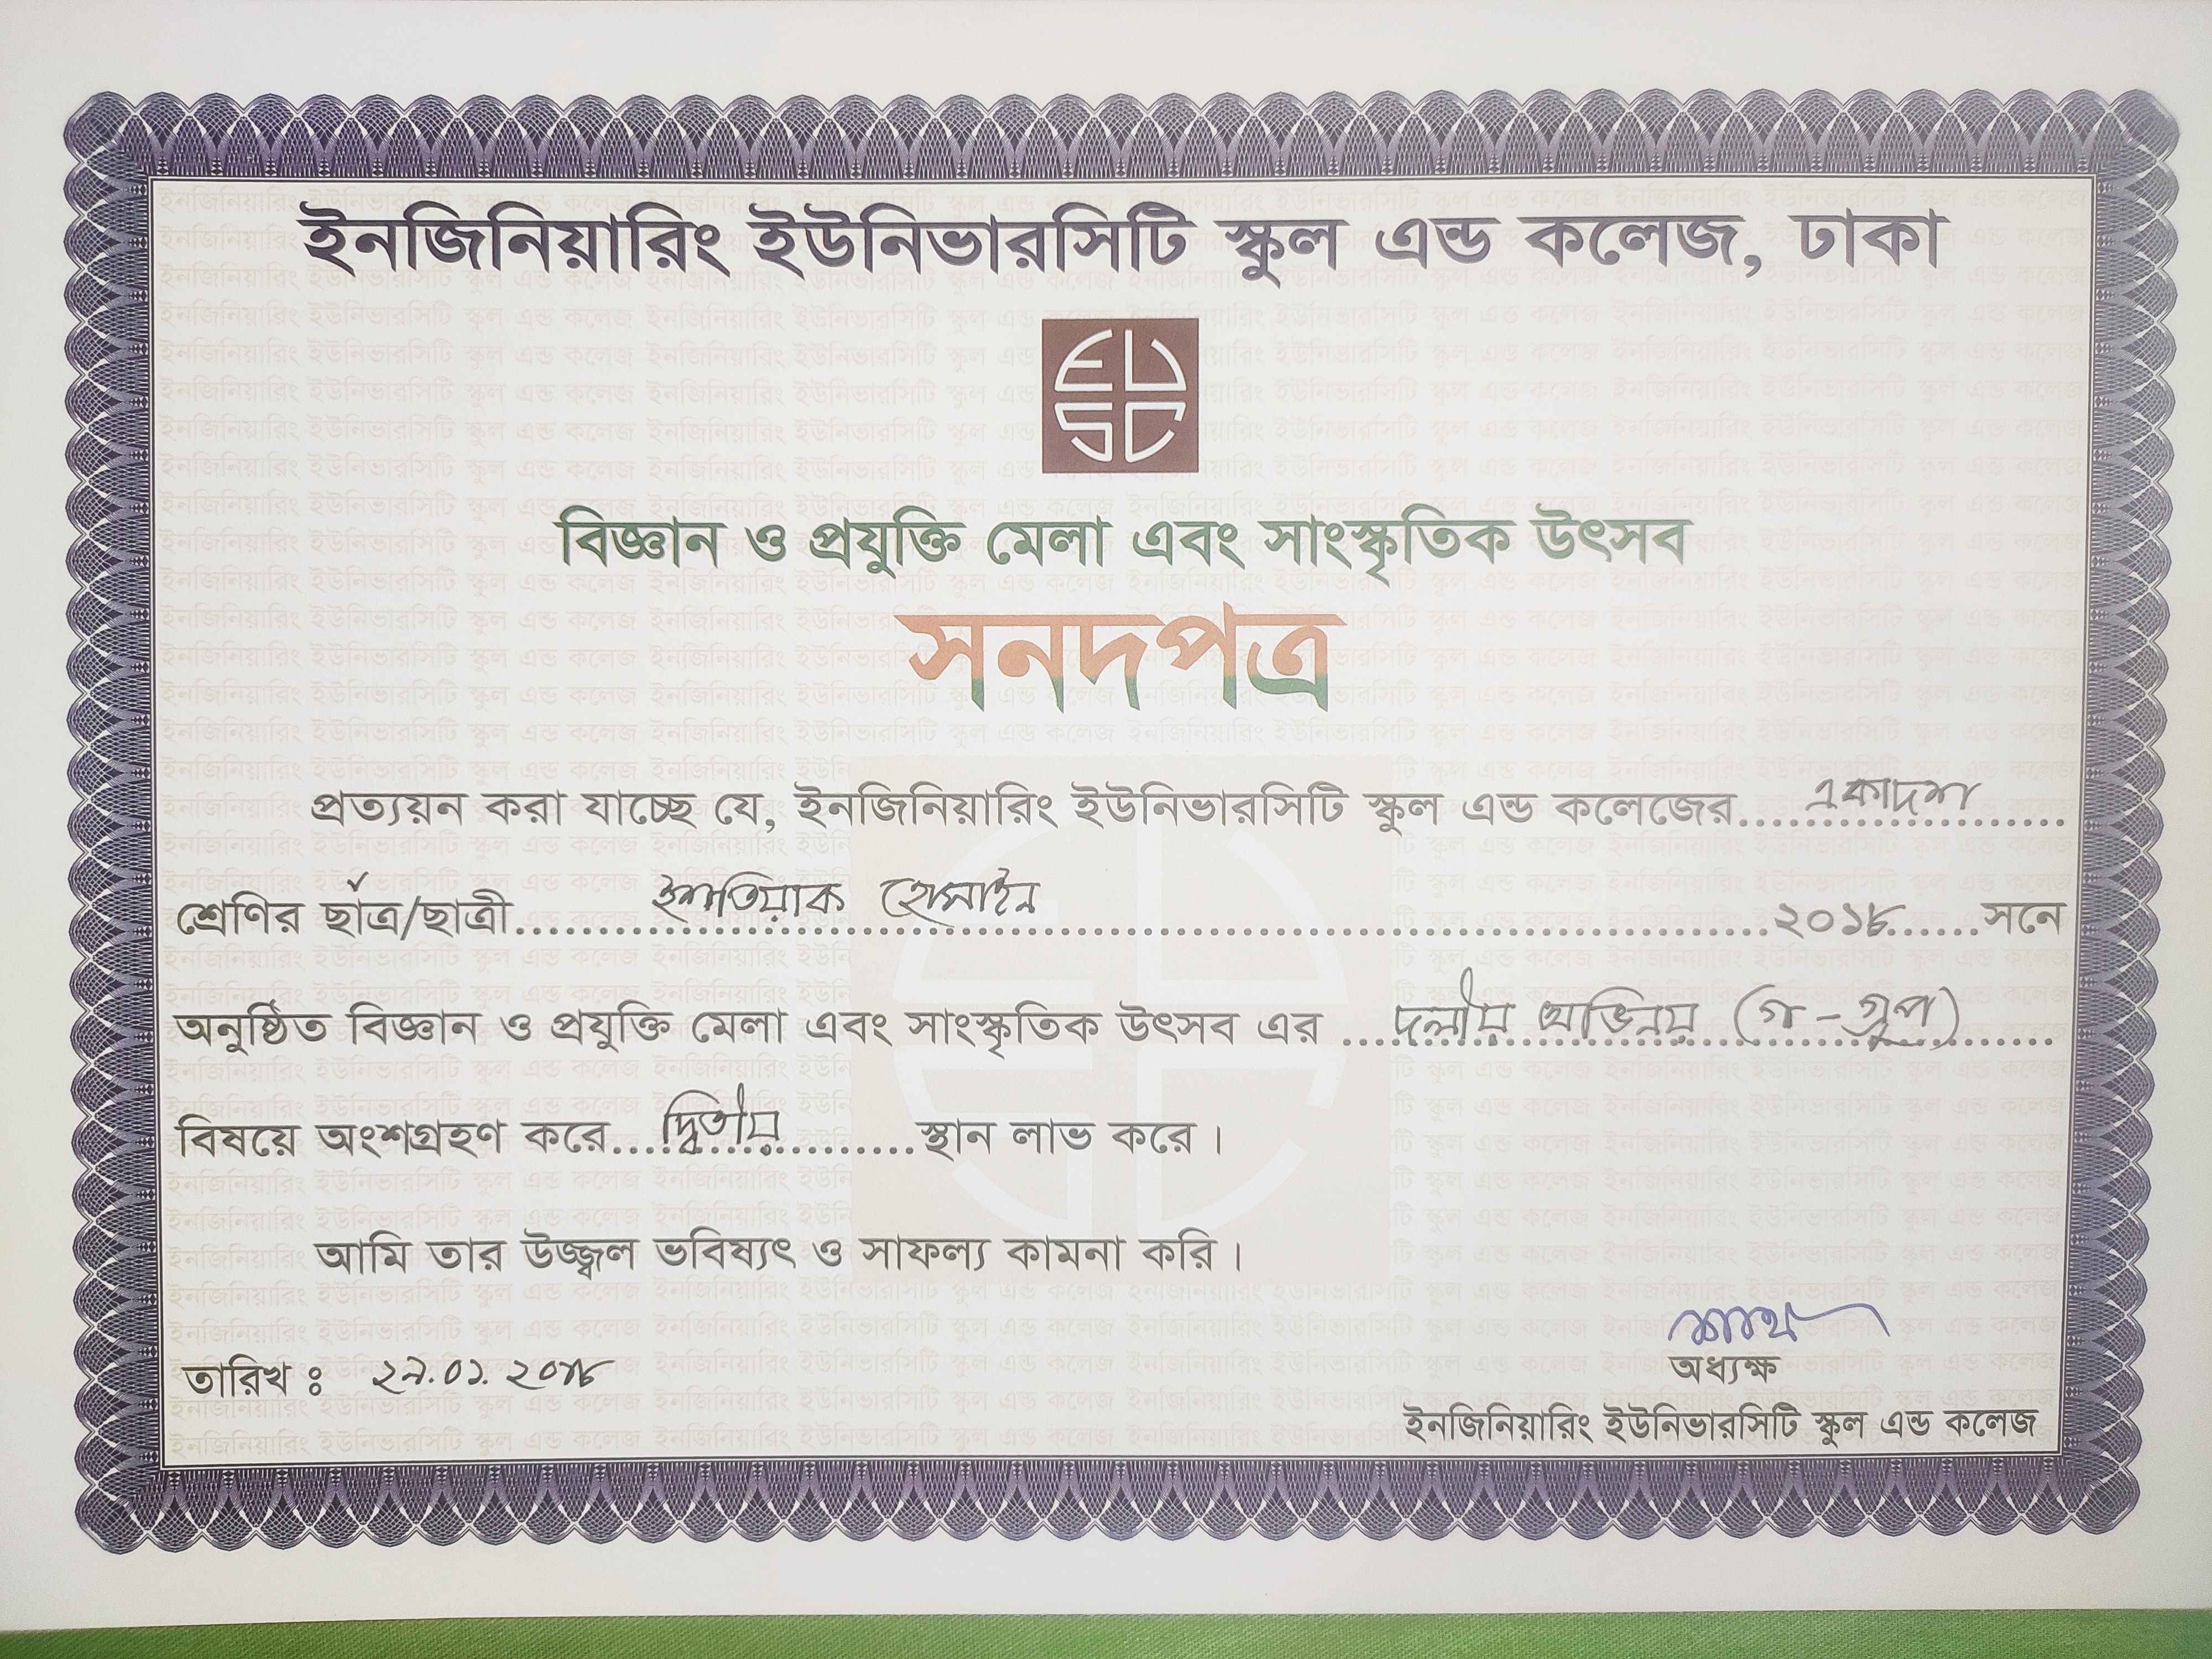 ইনজিনিয়ারিং ইউনিভারসিটি স্কুল এন্ড কলেজ, ঢাকা
EU
SC
বিজ্ঞান ও প্রযুক্তি মেলা এবং সাংস্কৃতিক উৎসব
সনদপত্র
প্রত্যয়ন করা যাচ্ছে যে, ইনজিনিয়ারিং ইউনিভারসিটি স্কুল এন্ড কলেজের একাদশ
শ্রেণির ছাত্র/ছাত্রী ইশতিয়াক হোসাইন ২০১৮ সনে
অনুষ্ঠিত বিজ্ঞান ও প্রযুক্তি মেলা এবং সাংস্কৃতিক উৎসব এর দলীয় অভিনয় (গ-গ্রুপ)
বিষয়ে অংশগ্রহণ করে দ্বিতীয় স্থান লাভ করে।
আমি তার উজ্জ্বল ভবিষ্যৎ ও সাফল্য কামনা করি।
তারিখ ঃ ২৭.০১.২০১৮
অধ্যক্ষ
ইনজিনিয়ারিং ইউনিভারসিটি স্কুল এন্ড কলেজ